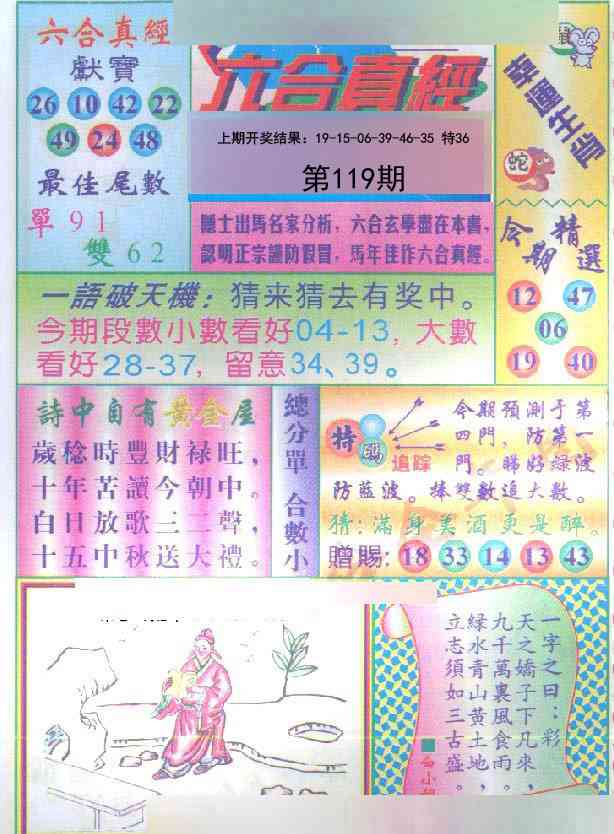 六合真經
獻寶
26 10 42 22
49 24 48
最佳尾數
單 9 1
雙 6 2
六合真經
上期开奖结果：19-15-06-39-46-35 特36
第119期
隱士出馬名家分析，六合玄學盡在本書，
認明正宗謹防假冒，馬年佳作六合真經。
幸運生肖
蛇
今期精選
12 47
06
19 40
一語破天機：猜来猜去有奖中。
今期段數小數看好04-13，大數
看好28-37，留意34、39。
詩中自有黃金屋
歲稔時豐財禄旺，
十年苦讀今朝中。
白日放歌三二聲，
十五中秋送大禮。
總分單 合數小
特碼
追踪
今期預測于第
四門，防第一
門。睇好绿波
防藍波。捧雙數追大數。
猜：滿身美酒更是醉。
贈賜：18 33 14 13 43
一字之曰：彩
天之嬌子下凡來，
九千萬裏風食雨，
緑水青山黃土地。
立志須如三古盛